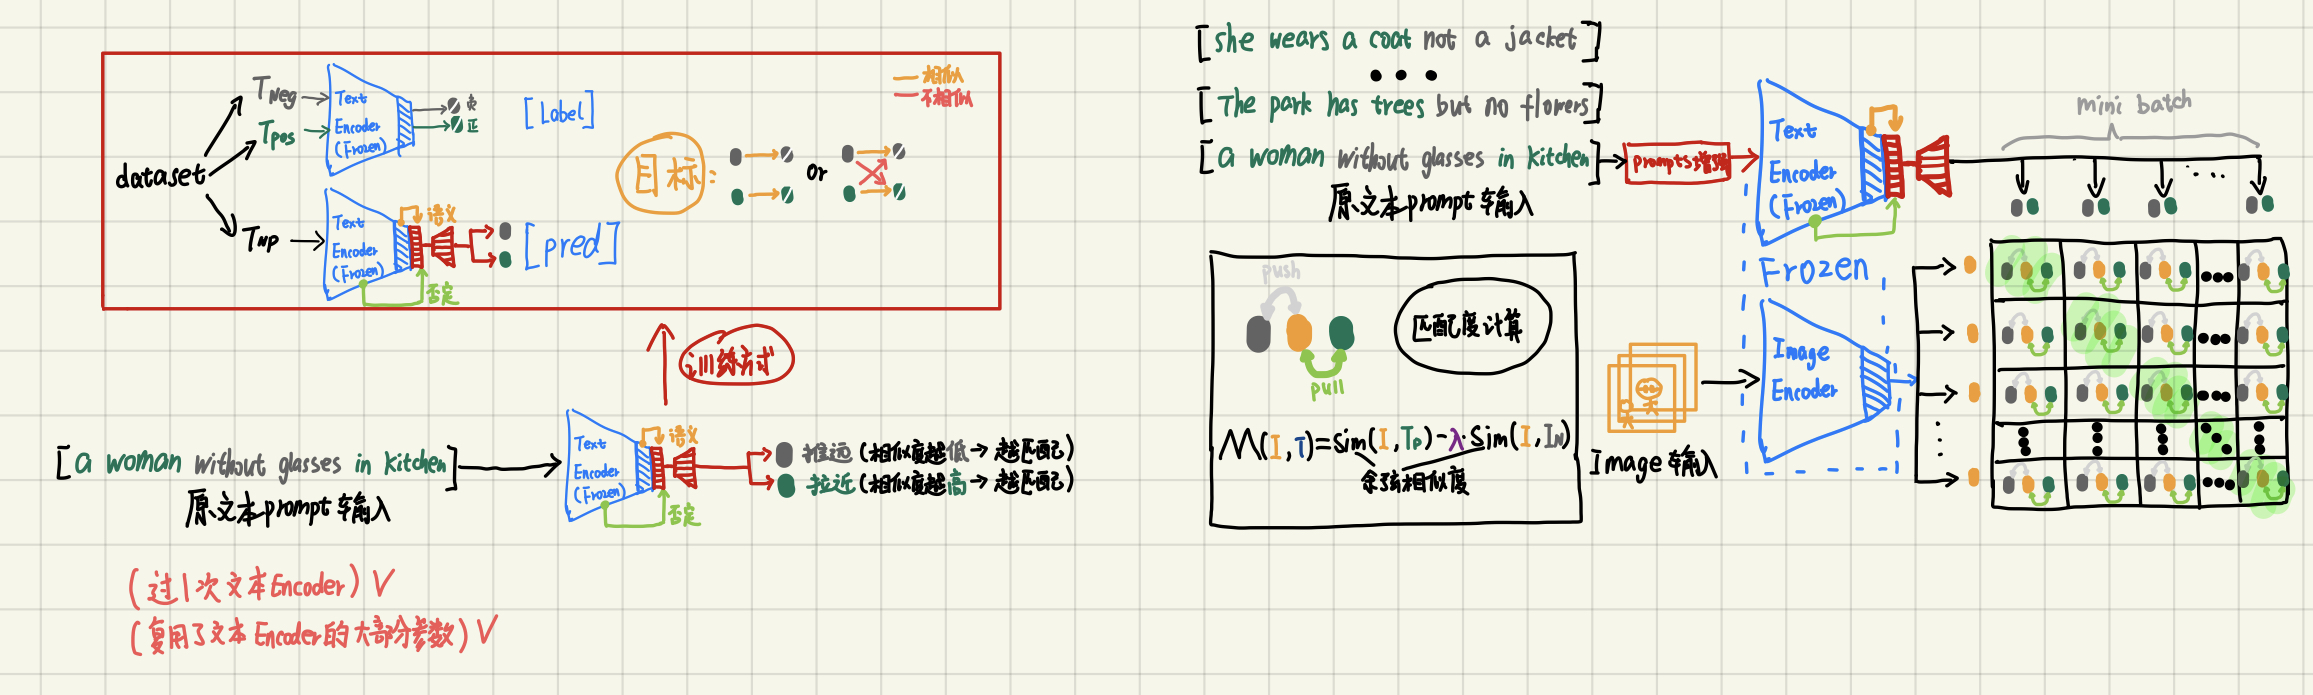 dataset
T Neg
T pos
T NP
Text
Encoder
(Frozen)
负
正
[Label]
Text
Encoder
(Frozen)
语义
否定
[pred]
目标:
or
相似
不相似
训练方式
[a woman without glasses in kitchen]
原文本prompt输入
Text
Encoder
(Frozen)
语义
否定
推远(相似度越低→越匹配)
拉近(相似度越高→越匹配)
(过1次文本Encoder)√
(复用了文本Encoder的大部分参数)√
[she wears a coat not a jacket]
•••
[The park has trees but no flowers]
[a woman without glasses in kitchen]
原文本prompt输入
prompts增强
Text
Encoder
(Frozen)
Frozen
Image
Encoder
mini batch
push
pull
匹配度计算
M(I,T)=Sim(I,Tp)-λ·Sim(I,IN)
余弦相似度
Image输入